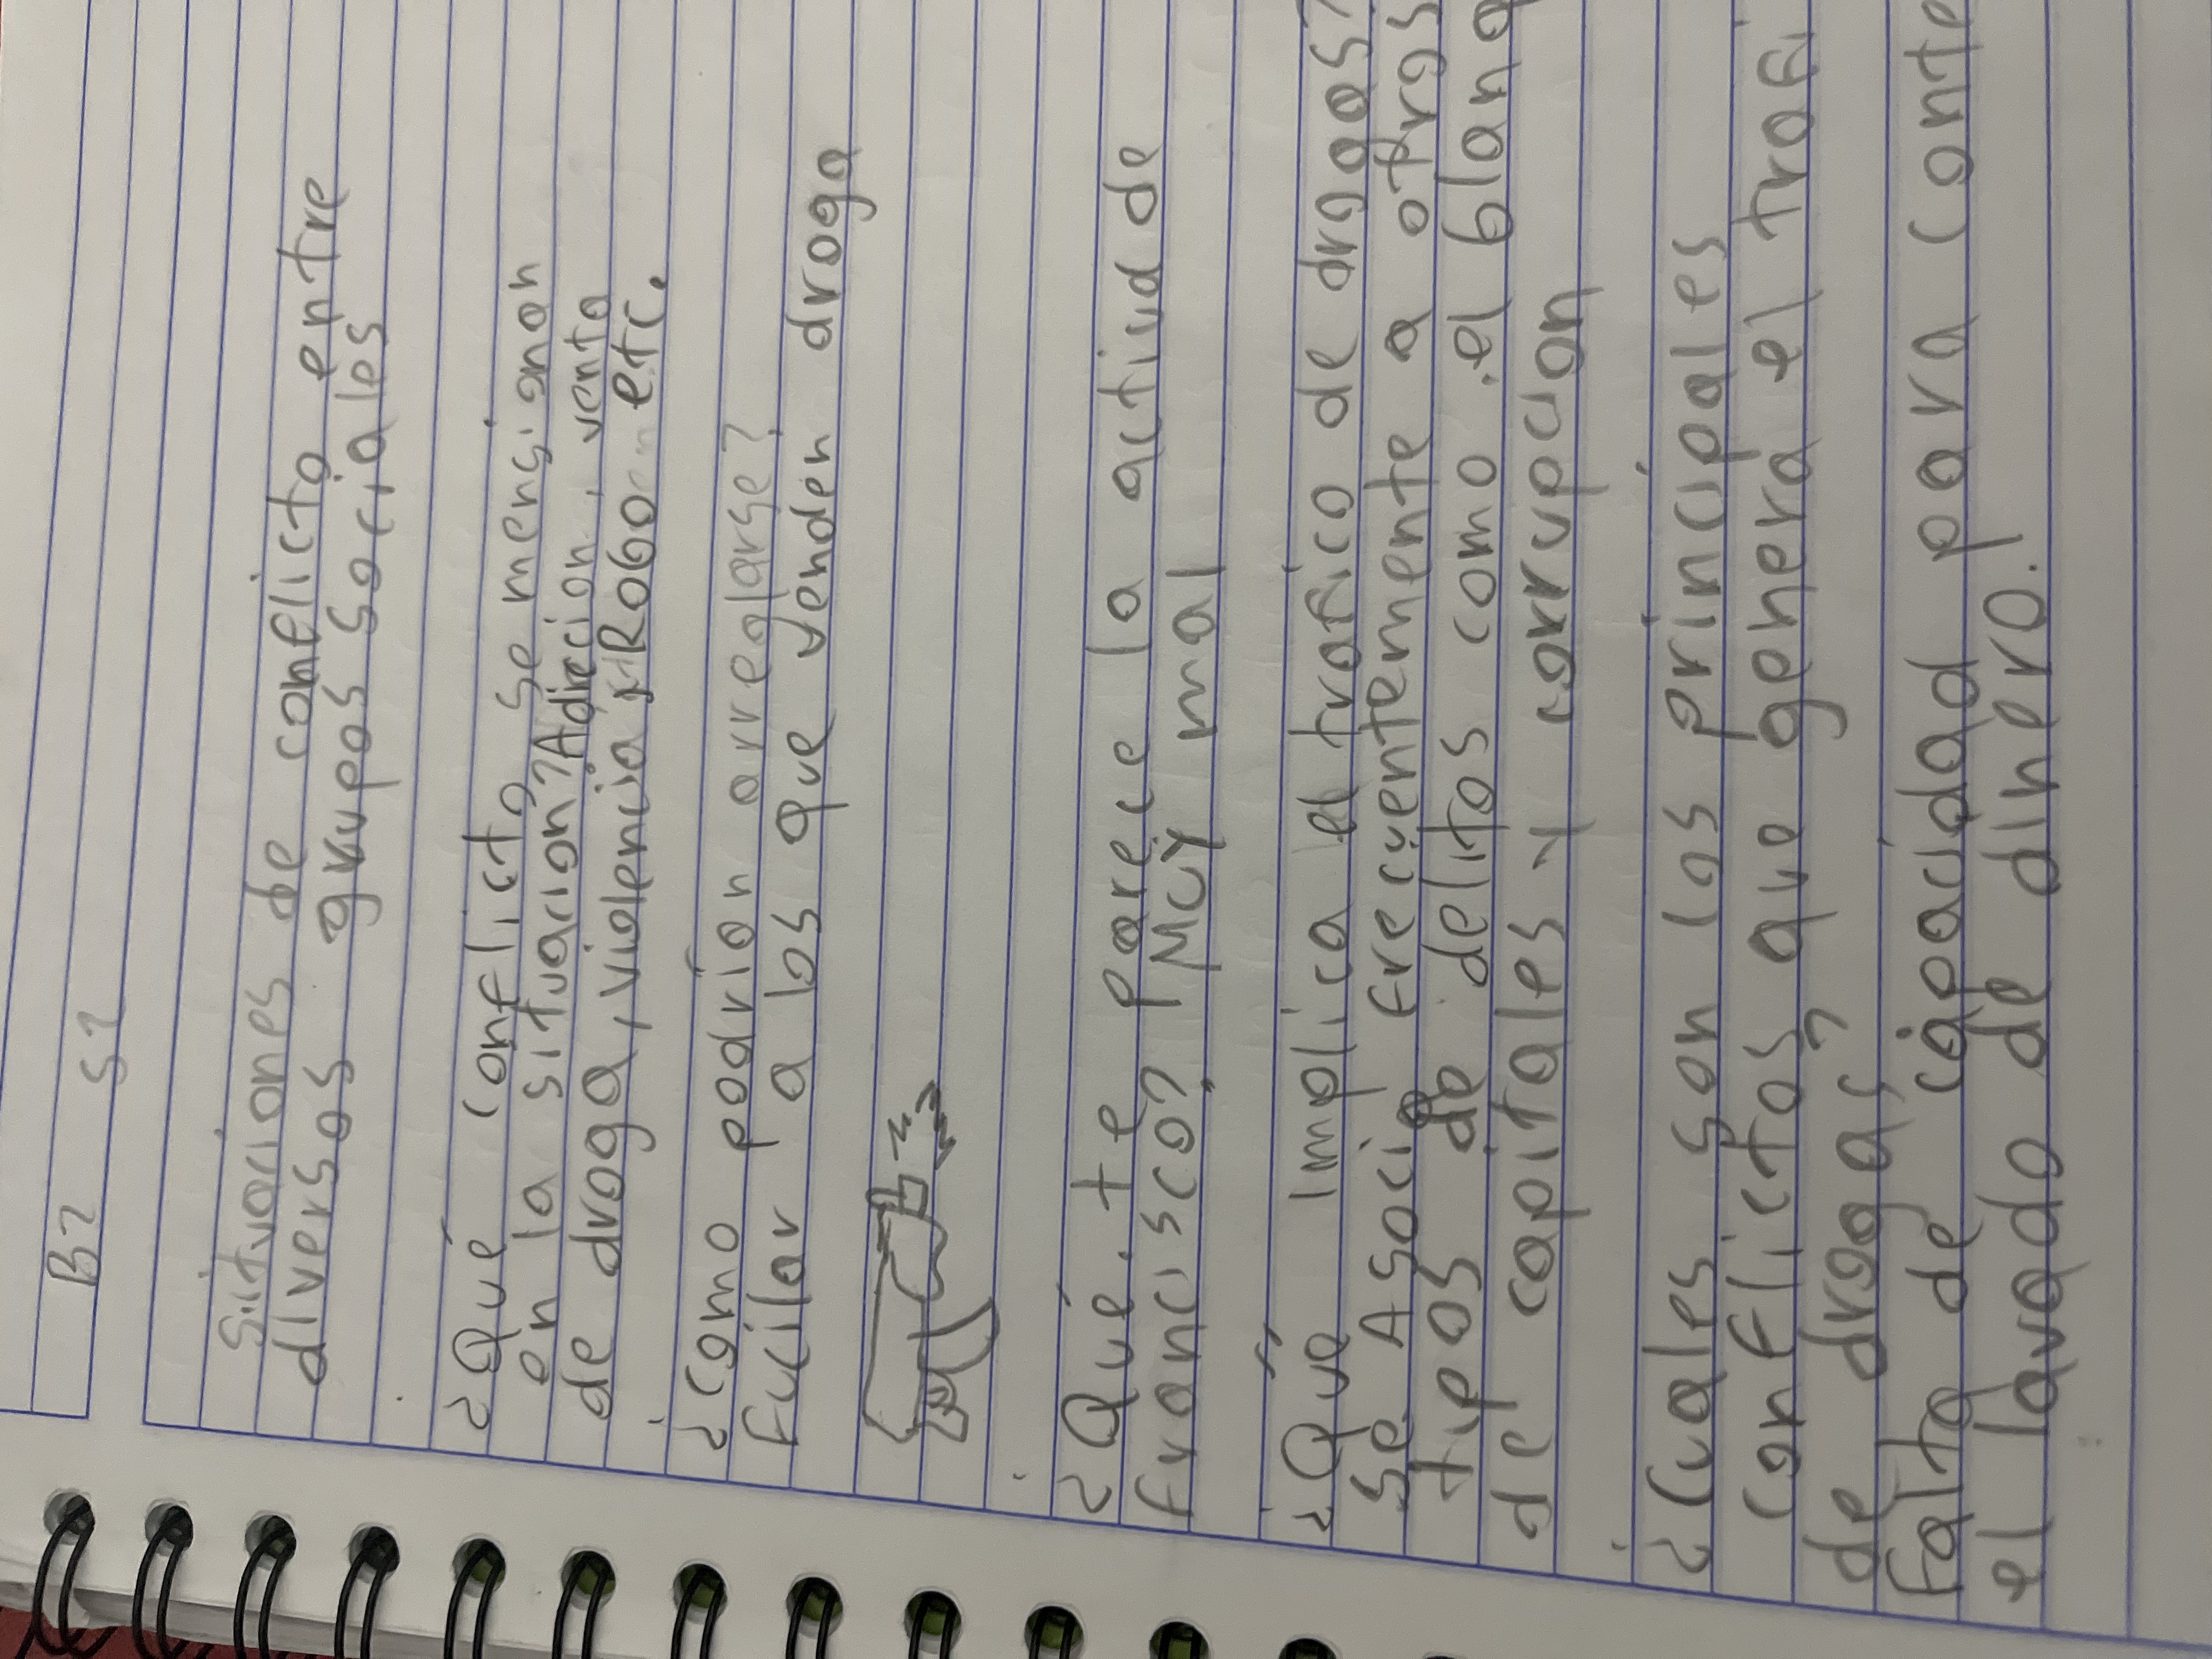 B2 S2
Situaciones de conflicto entre
diversos grupos sociales
¿Qué conflicto se mensionan
en la situación? Adiccion, venta
de droga, violencia, Robo etc.
¿como podrían arreglarse?
Fucilar a los que venden droga
¿Qué te parece la actiud de
francisco? Mcy mal
¿Qué Implica el trafico de drgas?
Se Asocia frecuentemente a otrgs
tipos de delitos como el blanq
de capitales y corrupcion
¿Cuales son los principales
conflictos que genera el trafi
de drgas?
Falta de capacidad para conte
el lavado de dinero.